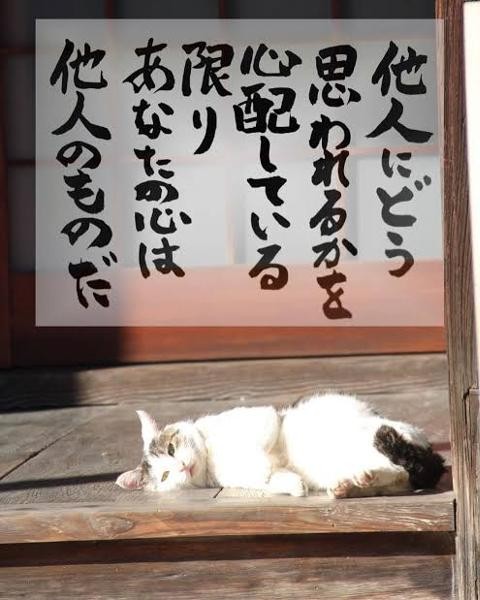 他人にどう
思われるかを
心配している
限り
あなたの心は
他人のものだ